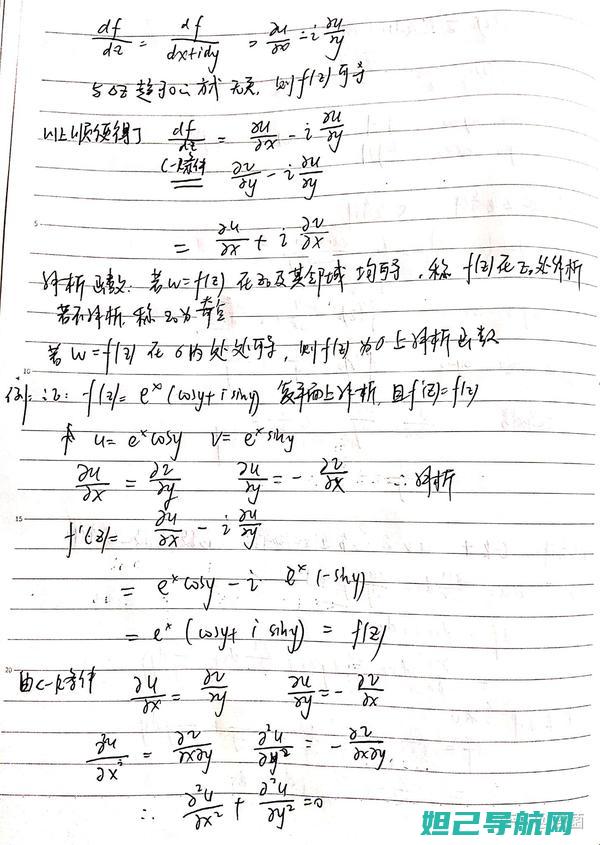 df/dz = df/dx+idy = ∂u/∂x - i ∂u/∂y
与Δz趋于0的方式无关, 则f(z)可导
以上顺便得了 df/dz = ∂u/∂x - i ∂u/∂y
C-R条件 ∂v/∂y - i ∂u/∂y
5
= ∂u/∂x + i ∂v/∂x
解析函数: 若w=f(z) 在z₀及其邻域 均可导, 称 f(z)在z₀处解析
若不解析, 称z₀为奇点
若w=f(z) 在σ内处处可导, 则f(z)为σ上解析函数
10
例: 证: f(z)= eˣ(cosy+isiny) 复平面上解析, 且f'(z)=f(z)
u= eˣcosy v= eˣsiny
∂u/∂x = ∂v/∂y ∂u/∂y = - ∂v/∂x ∴解析
15
f'(z)= ∂u/∂x - i ∂u/∂y
= eˣcosy - i eˣ(-siny)
= eˣ (cosy+ i siny) = f(z)
20
由C-R条件 ∂u/∂x = ∂v/∂y ∂u/∂y = - ∂v/∂x
∂²u/∂x² = ∂v/∂x∂y ∂²u/∂y² = - ∂v/∂x∂y
∴ ∂²u/∂x² + ∂²u/∂y² =0
妲己导航网